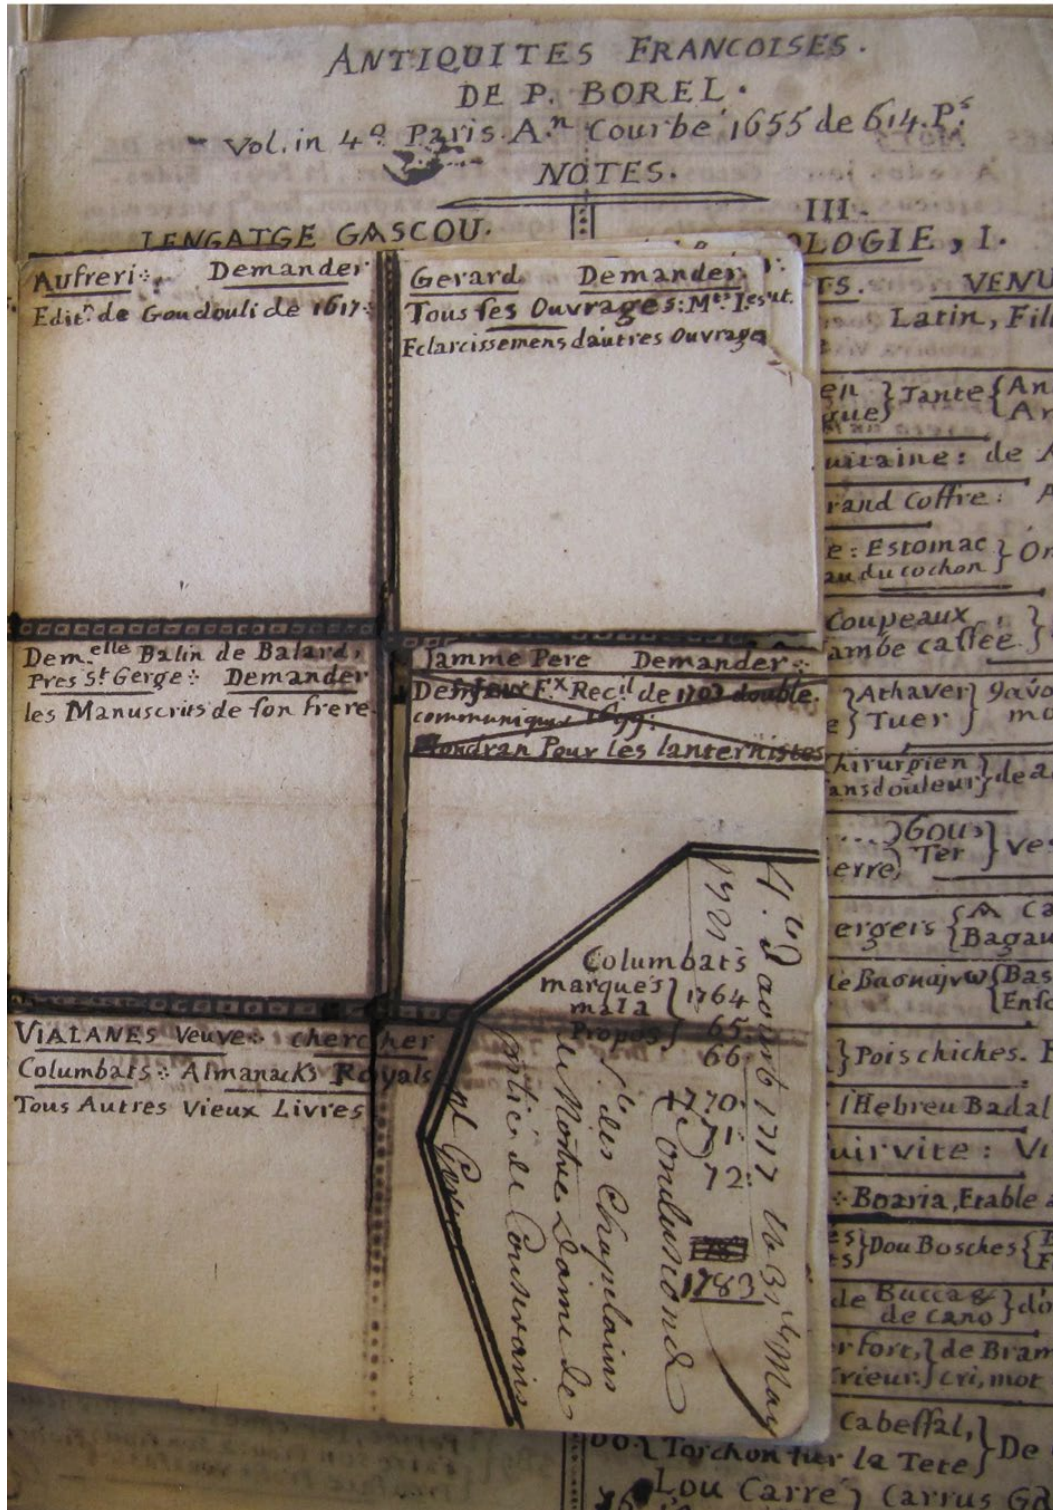 ANTIQUITES FRANCOISES.
DE P. BOREL.
Vol. in 4º Paris. A.n Courbé 1655 de 614. P.s
NOTES.
LENGATGE GASCOU.
III.
OLOGIE, I.
TS. VENU
Latin, Fill
Aufreri: Demander
Edit.n de Goudouli de 1617:
Gerard Demander
Tous ses Ouvrages: M.ts Iesut.
Eclarcissemens dautres Ouvrages
Dem.elle Balin de Balard,
Pres St Gerge: Demander
les Manuscrits de son frere
Jamme Pere Demander:
Recil de 1703 double.
communiqué 1699:
Mondran Pour les lanternistes
VIALANES Veuve: chercher
Columbats: Almanacks Royals
Tous Autres Vieux Livres
Columbats
marqués
mala
Propos
1764
65.
66.
70.
71.
72.
1783
aoust 1717 May
des Chapelains
de Nostre Dame de
de Conserans
en } Tante { An
gue
uiraine: de A
rand Coffre: A
e: Estomac } Or
au du cochon
Coupeaux }
ambe cassée
} Athaver } gavo
e } Tuer } mo
hirurgien } de a
ansdouleur
....} Gous } ves
ierre, Ter
ergers { A Ca
Bagau
{ Bas
Ensc
} Poischiches. E
l'Hebreu Badal
uirvite: Vi
: Boaria, Etable a
es } Dou Bosches {
de Bucca & } do
de cano
rfort, } de Bram
rieur. } cri, mot
Cabessal, } De
Torchon sur la Tete
Lou Carre } Carrus Ga